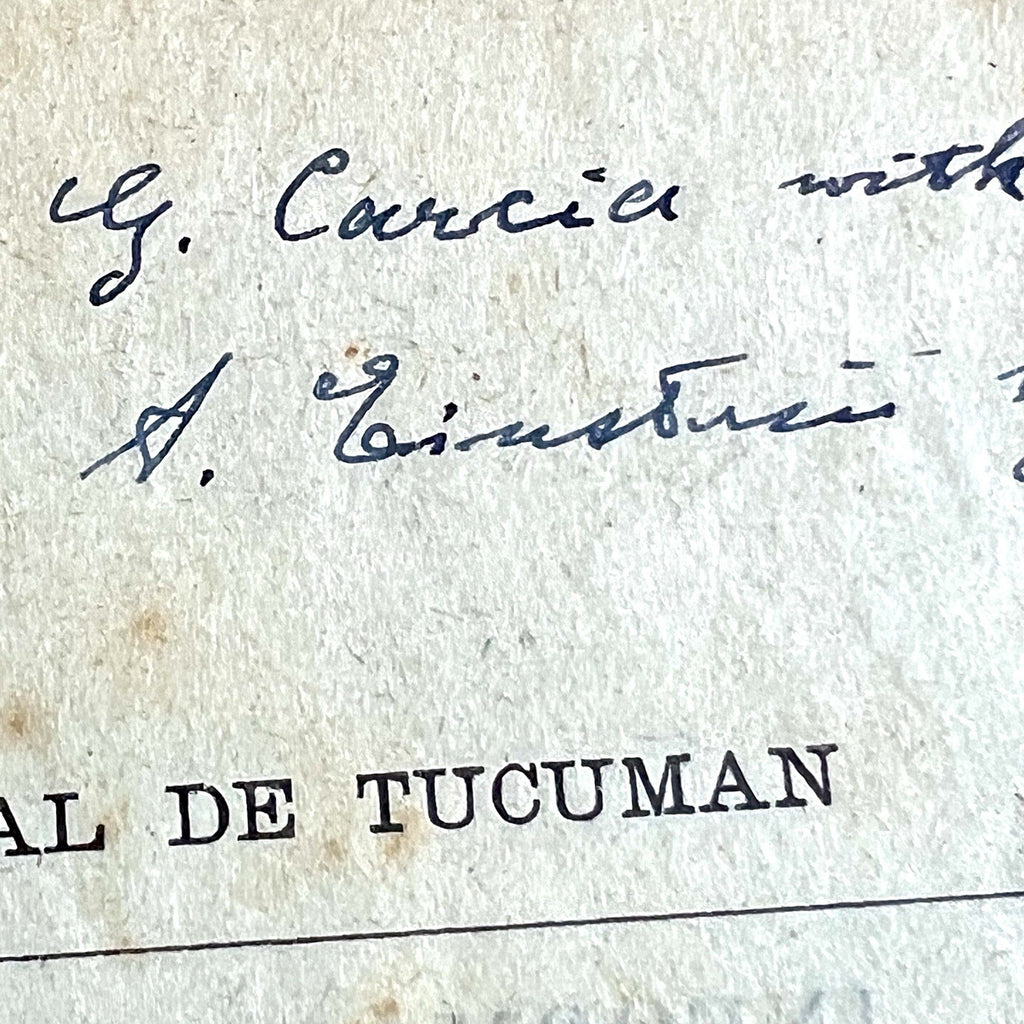 G. Carcia with
A. Einstein
AL DE TUCUMAN